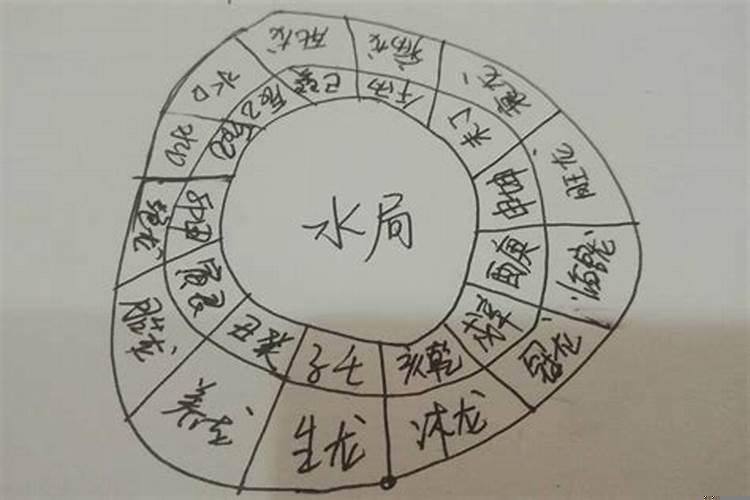 水局
死龙
病龙
衰龙
旺龙
冠龙
沐龙
生龙
养龙
胎龙
绝龙
水口
水口
午丙
未丁
申坤
酉庚
戌辛
亥乾
子壬
癸丑
寅艮